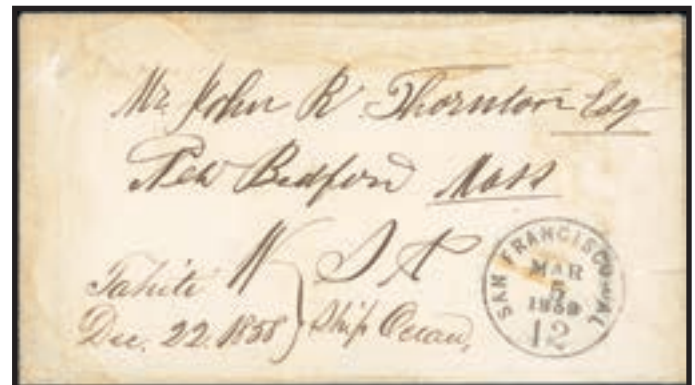 Mr John R Thornton Esq
New Bedford Mass
U S A
Tahiti
Dec. 22. 1858 } Ship Ocean,
SAN FRANCISCO CAL
MAR
5
1859
12